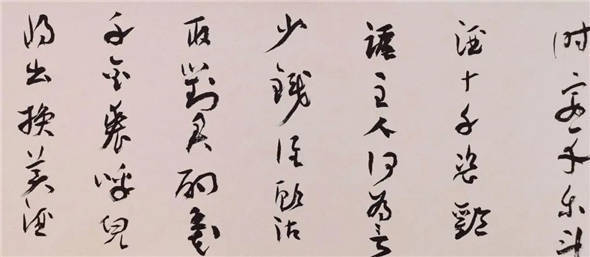 时宴平乐斗
酒十千恣歡
謔主人何为言
少錢徑須沽
取對君酌
千金裘呼兒
将出換美酒